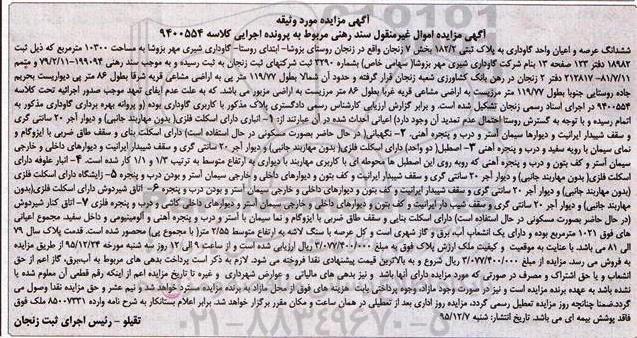 آگهی مزایده مورد وثیقه
آگهی مزایده اموال غیرمنقول سند رهنی مربوط به پرونده اجرایی کلاسه ۹۴۰۰۵۵۴
ششدانگ عرصه و اعیان واحد گاوداری به پلاک ثبتی ۱۸۲/۲ بخش ۷ زنجان واقع در زنجان روستای بزوشا- ابتدای روستا- گاوداری شیری مهر بزوشا به مساحت ۱۰۳۰۰ مترمربع که ذیل ثبت
۱۸۹۸۲ دفتر ۱۳۳ صفحه ۱۳ بنام شرکت گاوداری شیری مهر بزوشا( سهامی خاص) بشماره ۳۲۹۰ ثبت شرکتهای ثبت زنجان به ثبت رسیده و به موجب سند رهنی ۱۹۹۰۹۴-۷۹/۲/۱۱ و متمم
۸۱/۷/۱۱-۲۱۲۸۱۷ دفتر ۲ زنجان در رهن بانک کشاورزی شعبه زنجان قرار گرفته و حدود آن شمالا بطول ۱۱۹/۷۷ متر پی به اراضی مشاعی قریه شرقا بطول ۸۶ متر پی دیواریست بحریم
جاده روستایی جنوبا بطول ۱۱۹/۷۷ متر مرزیست به اراضی مشاعی قریه غربا بطول ۸۶ متر مرزیست به اراضی مزبور می باشد که به علت عدم ایفای تعهد موجب صدور اجرائیه تحت کلاسه
۹۴۰۰۵۵۴ در اجرای اسناد رسمی زنجان تشکیل شده است. و برابر گزارش ارزیابی کارشناس رسمی دادگستری پلاک مذکور با کاربری گاوداری بوده (و پروانه بهره برداری گاوداری مذکور به
اتمام رسیده و با توجه به گسترش روستا احتمال عدم تمدید آن وجود دارد) اعیانی احداث شده در آن عبارتند از: ۱- انباری دارای اسکلت فلزی( بدون مهاربند جانبی) و دیوار آجر ۲۰ سانتی گری
و سقف شیبدار ایرانیت و دیوارها سیمان آستر و درب و پنجره آهنی. ۲- نگهبانی( در حال حاضر بصورت مسکونی در حال استفاده است) دارای اسکلت بنای و سقف طاق ضربی با ایزوگام و
نمای سیمان با رویه سفید و درب و پنجره آهنی ۳- اصطبل( دو واحد) دارای اسکلت فلزی( بدون مهاربند جانبی) و دیوار آجر ۲۰ سانتی گری و سقف شیبدار ایرانیت و دیوارهای داخلی و خارجی
سیمان آستر و کف بتون و درب و پنجره آهنی که روبه روی این اصطبل ها محوطه ای با کاربری مهاربند با دیواری به ارتفاع متوسط به ترتیب ۱/۳ و ۱/۱ کار شده است. ۴- انبار علوفه دارای
اسکلت فلزی( بدون مهاربندی جانبی) و دیوار آجر ۲۰ سانتی گری و سقف شیبدار ایرانیت و کف بتون و دیوارهای داخلی و خارجی سیمان آستر و بودن درب و پنجره ۵- زایشگاه دارای اسکلت فلزی
(بدون مهاربندی جانبی) و دیوار آجر ۲۰ سانتی گری و سقف شیبدار ایرانیت و کف بتون و دیوارهای داخلی و خارجی سیمان آستر و بودن درب و پنجره ۶- اتاق شیردوش دارای اسکلت فلزی(بدون
مهاربند جانبی) و دیوار آجر ۲۰ سانتی گری و سقف شیب دار ایرانیت و کف بتون و دیوارهای داخلی و خارجی سیمان آستر و دیوارهای داخلی کاشی و درب و پنجره فلزی ۷- اتاق کنار شیردوش
(در حال حاضر بصورت مسکونی در حال استفاده است) دارای اسکلت بنایی و سقف طاق ضربی با ایزوگام و نما سیمان با آستر و درب و پنجره آهنی و آلومینیومی و داخل سفید. مجموع اعیانی
های فوق ۱۰۲۱ مترمربع بوده و دارای یک انشعاب آب، برق و گاز شهری است و کل عرصه با سنگ لاشه به ارتفاع متوسط ۲/۵۵ متر( با مجموع پی) محصور شده است. قدمت پلاک سال ۷۹
الی ۸۱ می باشد. با عنایت به موقعیت و کیفیت ملک ارزش پلاک فوق به مبلغ ۳/۰۷۷/۴۰۰/۰۰۰ ریال ارزیابی شده است و از ساعت ۹ الی ۱۲ روز سه شنبه مورخه ۹۵/۱۲/۲۴ از طریق مزایده
به فروش می رسد. مزایده از مبلغ ۳/۰۷۷/۴۰۰/۰۰۰ ریال شروع و به بالاترین قیمت پیشنهادی نقدا فروخته می شود. لازم به ذکر است پرداخت بدهی های مربوط به آب،برق، گاز اعم از حق
انشعاب و یا حق اشتراک و مصرف در صورتی که مورد مزایده دارای آنها باشد و نیز بدهی های مالیاتی و عوارض شهرداری و غیره تا تاریخ مزایده اعم از اینکه رقم قطعی آن معلوم شده یا
نشده باشد به عهده برنده مزایده است و نیز در صورت وجود مازاد، وجوه پرداختی بابت هزینه های فوق از محل مازاد به برنده مزایده مسترد خواهد شد و نیم عشر و حق مزایده نقدا وصول می
گردد.ضمنا چنانچه روز مزایده تعطیل رسمی گردد، مزایده روز اداری بعد از تعطیلی در همان ساعت و مکان مقرر برگزار خواهد شد. برابر اعلام بستانکار به شرح نامه وارده ۸۵۰۰۷۳۳۱ ملک فوق
فاقد پوشش بیمه ای می باشد. تاریخ انتشار: شنبه ۹۵/۱۲/۷
تقیلو - رئیس اجرای ثبت زنجان
۰۲۱-۸۸۳۴۹۶۷۰-۵